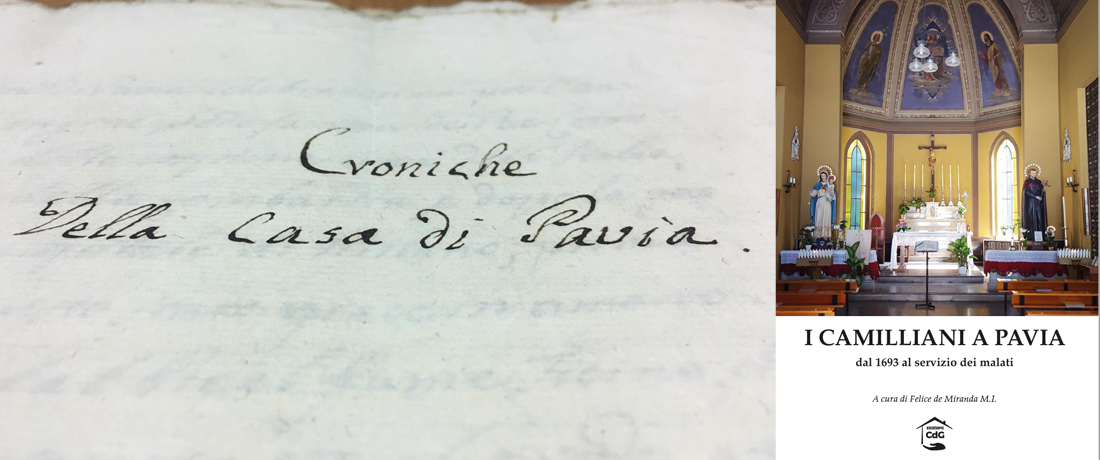 Croniche
Della Casa di Pavia.
I CAMILLIANI A PAVIA
dal 1693 al servizio dei malati
A cura di Felice de Miranda M.I.
CdG